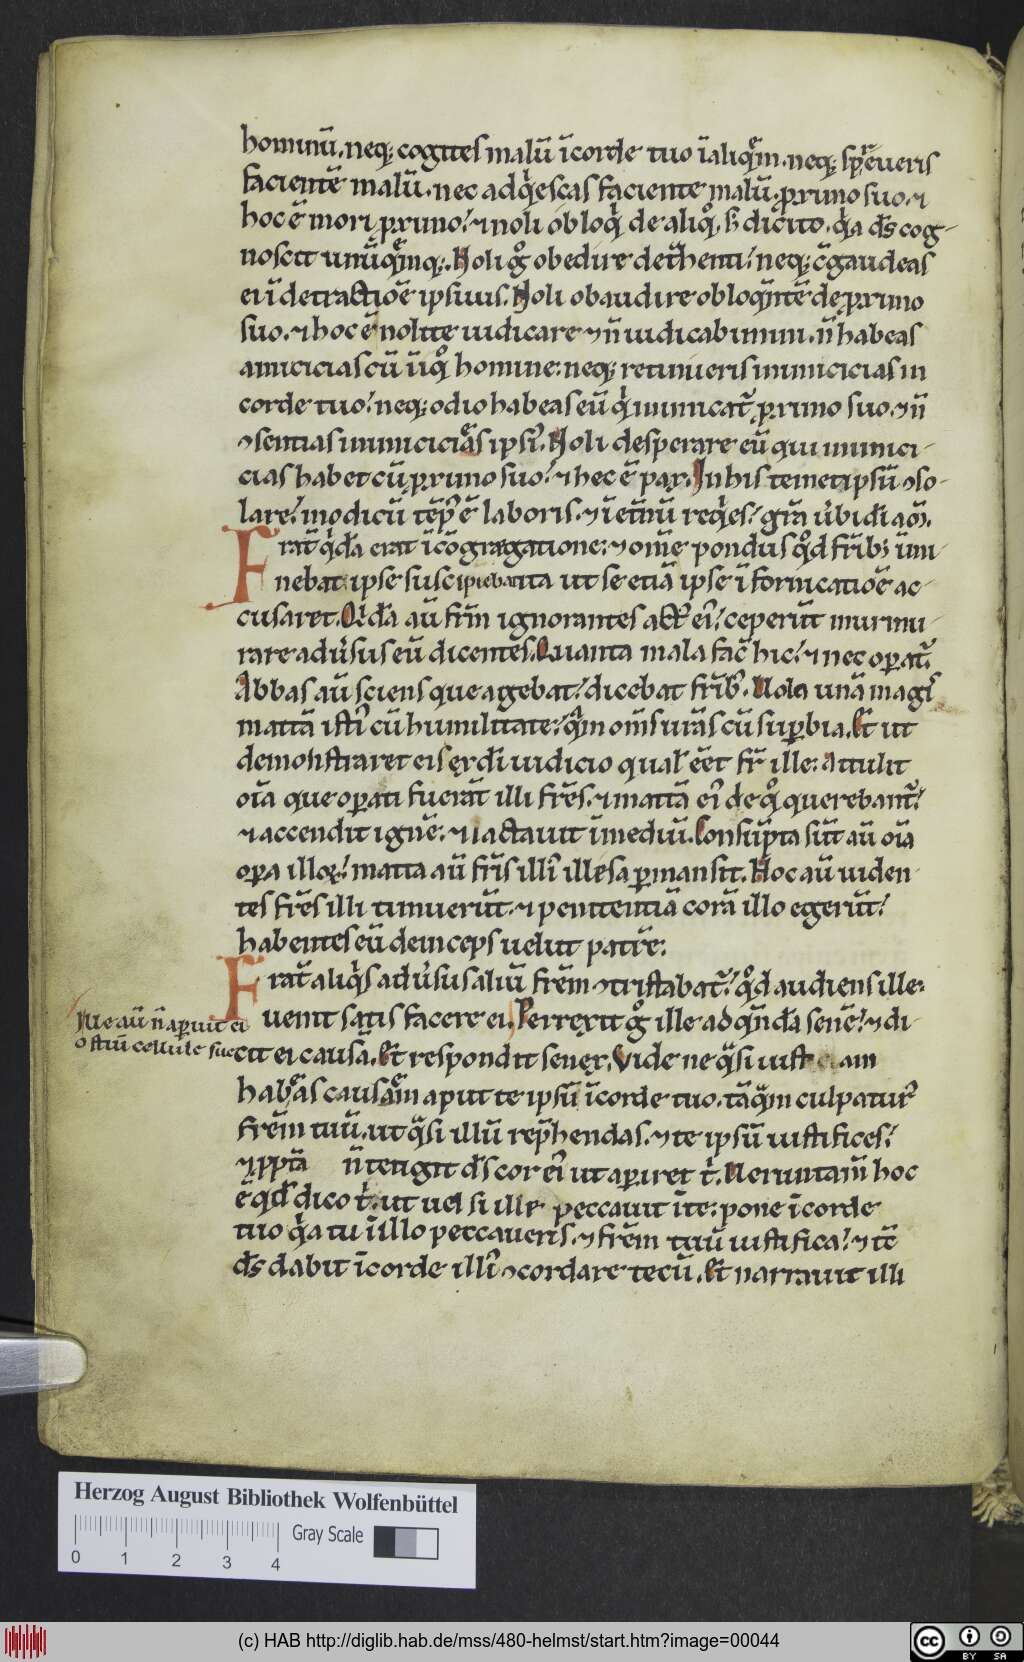 hominū. neq; cogites malū ī corde tuo ī aliquē. neq; spreueris
facientē malū. nec adqͥescas faciente malū. pximo suo. ⁊
hoc ē mori pximo. ⁊ noli obloqͥ de aliqͦ. s; dicito. qͥa ds̄ cog-
noscit unū qͣmq;. Noli gͦ obedire detrͣhenti. neq; cgaudeas
ei ī detractiōe ipsius. Noli obaudire obloqntē de pximo
suo. ⁊ hoc ē nolite iudicare ⁊ n̄ iudicabimini. n̄ habeas
amicicias cū iniqͦ homine: neq; retinueris inimicicias in
corde tuo. neq; odio habeas eū qͥ inimicat̄ pximo suo. ⁊ n̄
ↄsentias inimiciciās ipsi᷒. Noli desperare eū qui inimici-
cias habet cū pximo suo. ⁊ hec ē pax. In his temetipsū ↄso-
lare. modicū tēp᷒ ē laboris. ⁊ ī etn̄ū reqͥes. gr̄a ūbi di am̄.
Frat̄ qͥda erat ī cōgregatione: ⁊ om̄e pondus qͦd fr̄ib; īmi-
nebat ipse suscipiebat ita ut se etiā ipse ī fornicatiōe ac-
cusaret. Qͥdā aū frm̄ ignorantes act᷒ ei᷒. ceperūt murmu-
rare adūsus eū dicentes. Quanta mala fac̄ hic. ⁊ nec opat̄.
Abbas aū sciens que agebat. dicebat fr̄ib᷒. Uolo unā magis
mattā isti᷒ cū humilitate. qͣm om̄s uirās cū supbia. Et ut
demonstraret eis ex di iudicio qual᷒ eēt fr̄ ille: Attulit
oīa que opati fuerāt illi frēs. ⁊ mattā ei᷒ de qͦ querebant̄.
⁊ accendit ignē. ⁊ iactauit ī mediū. Consūpta sūt aū oīa
opa illoꝝ. matta aū fr̄is illi᷒ illesa pmansit. Hoc aū uiden-
tes frēs illi timuerūt. ⁊ penitentiā corā illo egerūt.
habentes eū deinceps uelut patrē:
Frat̄ aliqͥs adūsus aliū frēm ↄtristabat̄. qͦd audiens ille.
uenit satis facere ei. Perrexit gͦ ille ad qn̄dā senē. ⁊ di-
Ille aū n̄ apuit ei
ostiū cellule sue
cit ei causā. Et respondit senex. Vide ne qͣsi iustam
habeas causām aput te ipsū ī corde tuo. tāqͣm culpatur᷒
frēm tuū. ut qͣsi illū rep̄hendas. ⁊ te ipsū iustifices.
⁊ pptā n̄ tetigit ds̄ cor ei᷒ ut apiret tͥ. Ueruntam̄ hoc
ē qd̄ dico tͥ. ut uel si ille peccauit ī te: pone ī corde
tuo qͥa tu ī illo peccaueris. ⁊ frēm tuū iustifica. ⁊ tē
ds̄ dabit ī corde illi᷒ ↄcordare tecū. Et narrauit illi
Herzog August Bibliothek Wolfenbüttel
Gray Scale
0 1 2 3 4
(c) HAB http://diglib.hab.de/mss/480-helmst/start.htm?image=00044
cc BY SA